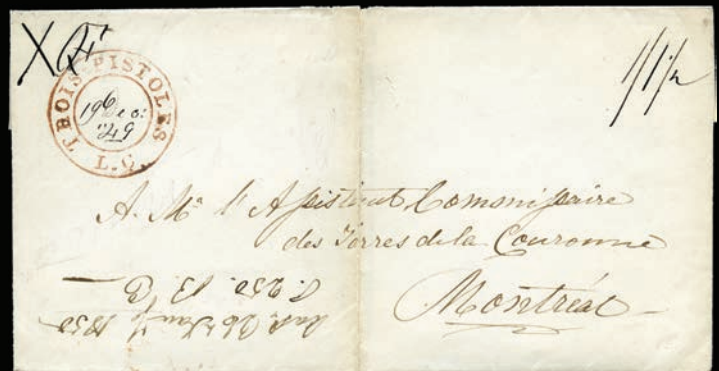 TROIS-PISTOLES
L.C.
19 Dec:
49
1/1½
A. Mr l'Assistant Commissaire
des Terres de la Couronne
Montréal
1850